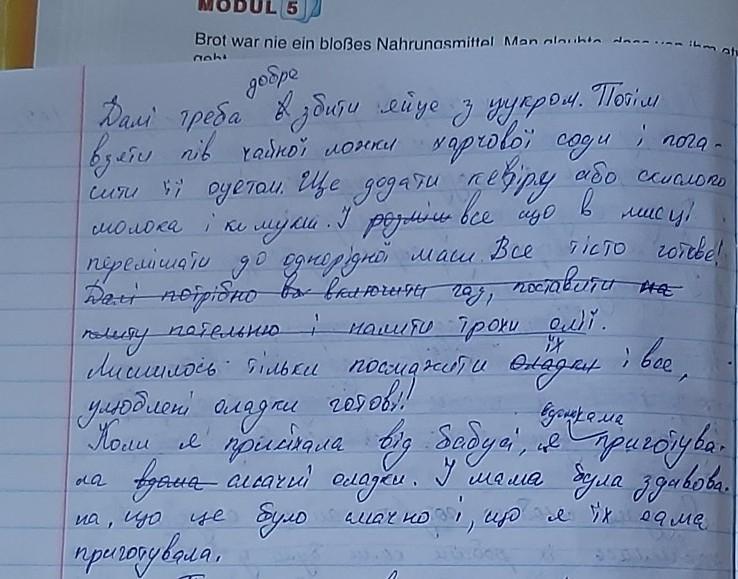 MODUL 5
Brot war nie ein bloßes Nahrungsmittel. Man glaubte, dass von ihm
geht
добре
Далі треба взбити яйце з цукром. Потім
взяти пів чайної ложки харчової соди і пога-
сити її оцетом. Ще додати кефіру або скислого
молока і муки. І розміш все що в мисці
перемішати до однорідної маси. Все тісто готове!
Далі потрібно вк включити газ, поставити на
плиту пательню і налити трохи олії.
їх
Лишилось тільки посмажити оладки і все,
улюблені оладки готові!
вдома сама
Коли я приїхала від бабусі, я приготува-
ла вдома смачні оладки. І мама була здивова-
на, що це було смачно і, що я їх сама
приготувала.